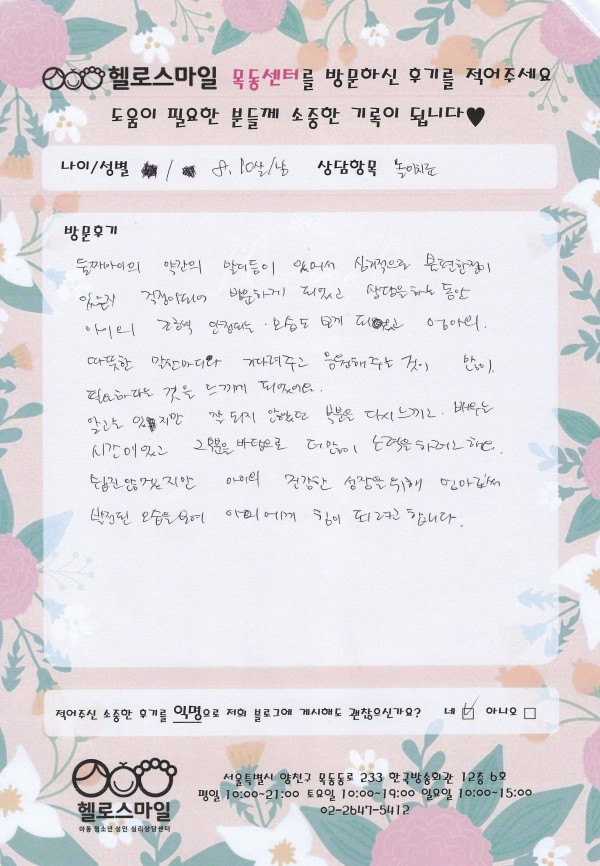 헬로스마일 목동센터를 방문하신 후기를 적어주세요
도움이 필요한 분들께 소중한 기록이 됩니다♥
나이/성별 / 8. 10살/남 상담항목 놀이치료
방문후기
둘째아이의 약간의 말더듬이 있어서 심리적으로 불편한점이
있는지 걱정이되어 방문하게 되었고 상담을 하는 동안
아이의 조금씩 안정되는 모습도 보게 되었고 엄마의
따뜻한 말한마디와 기다려주고 응원해주는 것이 많이
필요하다는 것을 느끼게 되었어요.
알고는 있지만 잘 되지 않았던 부분을 다시 느끼고 배우는
시간이었고 그부분을 바탕으로 더 많이 노력을 하려고 해요.
쉽진 않겠지만 아이의 건강한 성장을 위해 엄마로써
발전된 모습을 보여 아이에게 힘이 되려고 합니다.
적어주신 소중한 후기를 익명으로 저희 블로그에 게시해도 괜찮으신가요? 네 ☑ 아니오 □
헬로스마일
아동 청소년 성인 심리상담센터
서울특별시 양천구 목동동로 233 한국방송회관 12층 6호
평일 10:00~21:00 토요일 10:00~19:00 일요일 10:00~15:00
02-2647-5412